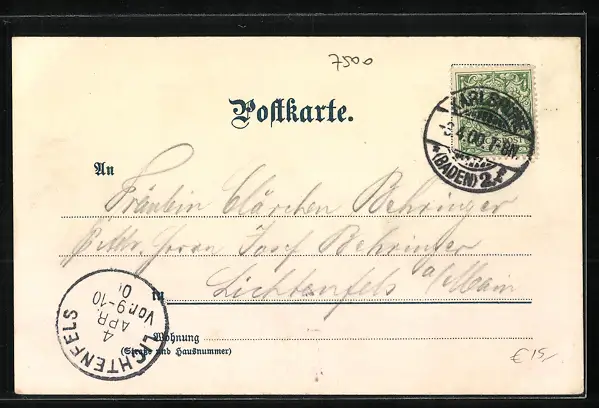 7500
Postkarte.
KARLSRUHE
-3.4.00.7-8N.
*(BADEN) 2.*
An Fräulein Clärchen Behringer
Herrn Josef Behringer
in Lichtenfels a/Main
LICHTENFELS
4
APR.
Vor. 9-10
Wohnung
(Straße und Hausnummer)
€ 15,-